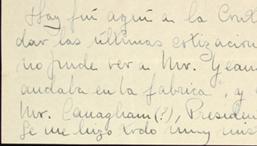 Hoy fuí aquí a la Cont
dar las últimas cotizacion
no pude ver a Mr. Yean
andaba en la fabrica", y
Mr. Canagham(?), Presiden
Se me hizo todo muy mis